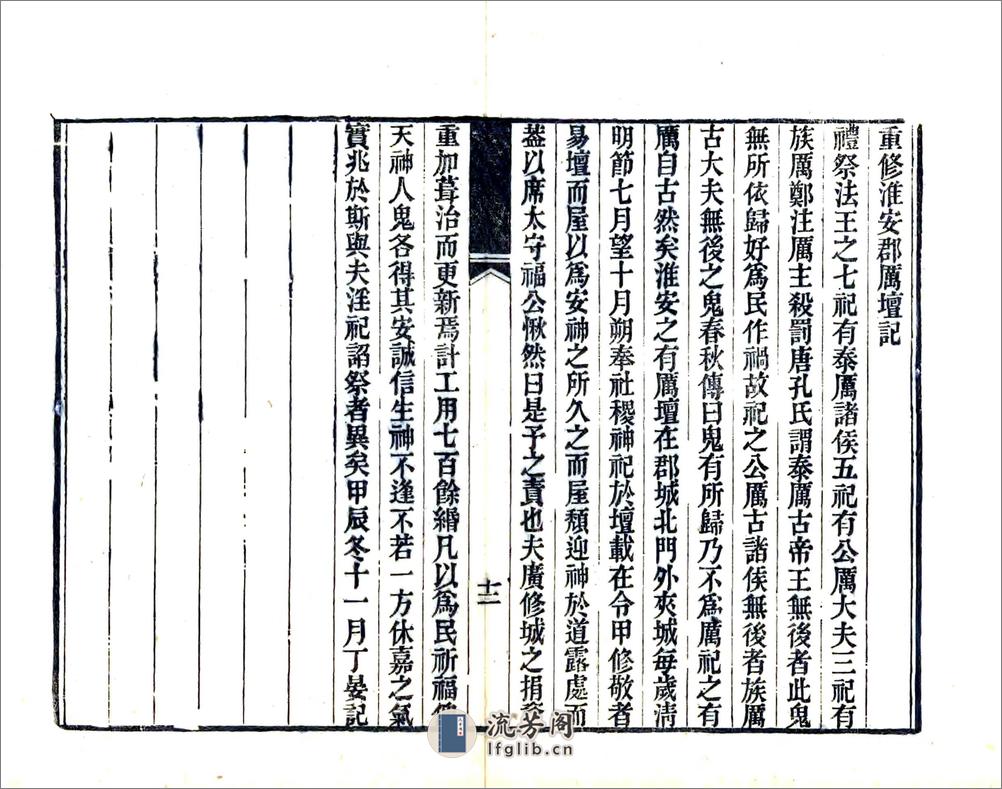 重修淮安郡厲壇記
禮祭法王之七祀有泰厲諸侯五祀有公厲大夫三祀有
族厲鄭注厲主殺罰唐孔氏謂泰厲古帝王無後者此鬼
無所依歸好爲民作禍故祀之公厲古諸侯無後者族厲
古大夫無後之鬼春秋傳曰鬼有所歸乃不爲厲祀之有
厲自古然矣淮安之有厲壇在郡城北門外夾城每歲淸
明節七月望十月朔奉社稷神祀於壇載在令甲修敬者
易壇而屋以爲安神之所久之而屋頹迎神於道露處而
葢以席太守福公愀然曰是予之責也夫廣修城之捐資
十二
重加葺治而更新焉計工用七百餘緡凡以爲民祈福俾
天神人鬼各得其安誠信生神不逢不若一方休嘉之氣
實兆於斯與夫淫祀諂祭者異矣甲辰冬十一月丁晏記
流芳阁
lfglib.cn